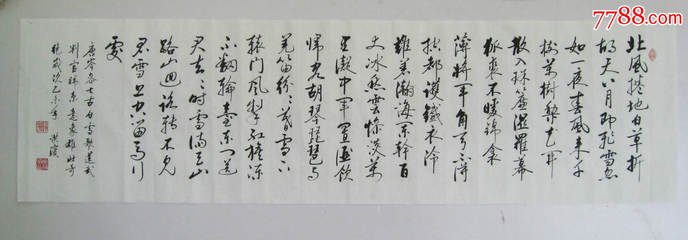 7788.com
北風捲地白草折
胡天八月即飛雪忽
如一夜春風来千
樹萬樹梨花開
散入珠簾濕羅幕
狐裘不暖錦衾
薄將軍角弓不得
控都護鐵衣冷
難著瀚海闌干百
丈冰愁雲慘淡萬
里凝中軍置酒飲
歸客胡琴琵琶与
羌笛紛〻暮雪下
轅門風掣紅旗凍
不翻輪臺東門送
君去〻時雪滿天山
路山迴路轉不見
君雪上空留馬行
處
唐岑參七古白雪歌送武
判官歸京